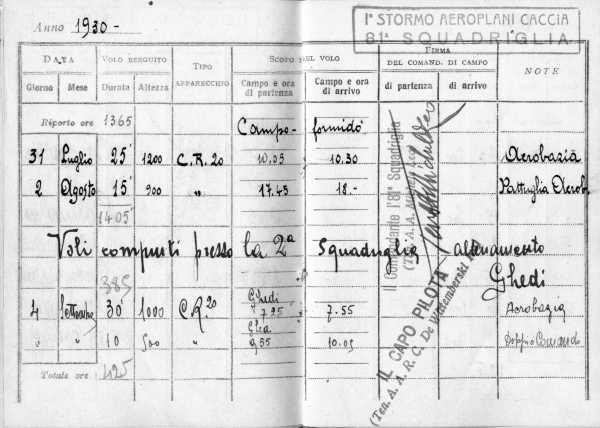 Anno 1930-
Iº STORMO AEROPLANI CACCIA
81ª SQUADRIGLIA
DATA VOLO ESEGUITO TIPO APPARECCHIO SCOPO DEL VOLO FIRMA DEL COMAND. DI CAMPO NOTE
Giorno Mese Durata Altezza Campo e ora di partenza Campo e ora di arrivo di partenza di arrivo
Riporto ore 1365 Campo-formido
31 Luglio 25' 1200 C.R. 20 10.05 10.30 Acrobazia
2 Agosto 15' 900 " 17.45 18.- Pattuglia Acrob.
1405
Voli compiuti presso la 2ª Squadriglia allenamento
385 Ghedi
4 Settembre 30' 1000 C.R. 20 Ghedi 7.25 7.55 Acrobazia
" " 10 500 " 9.55 10.05 Doppio Comando
Totale ore 425
Il Comandante 81ª Squadriglia
IL CAPO PILOTA
(Ten. A. A. R. C. De Wittemberski